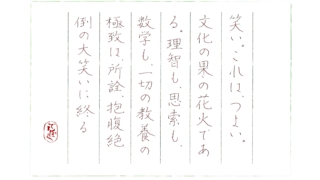 笑い。これは、つよい。
文化の果の花火であ
る。理智も、思索も、
数学も、一切の教養の
極致は、所詮、抱腹絶
倒の大笑いに終る